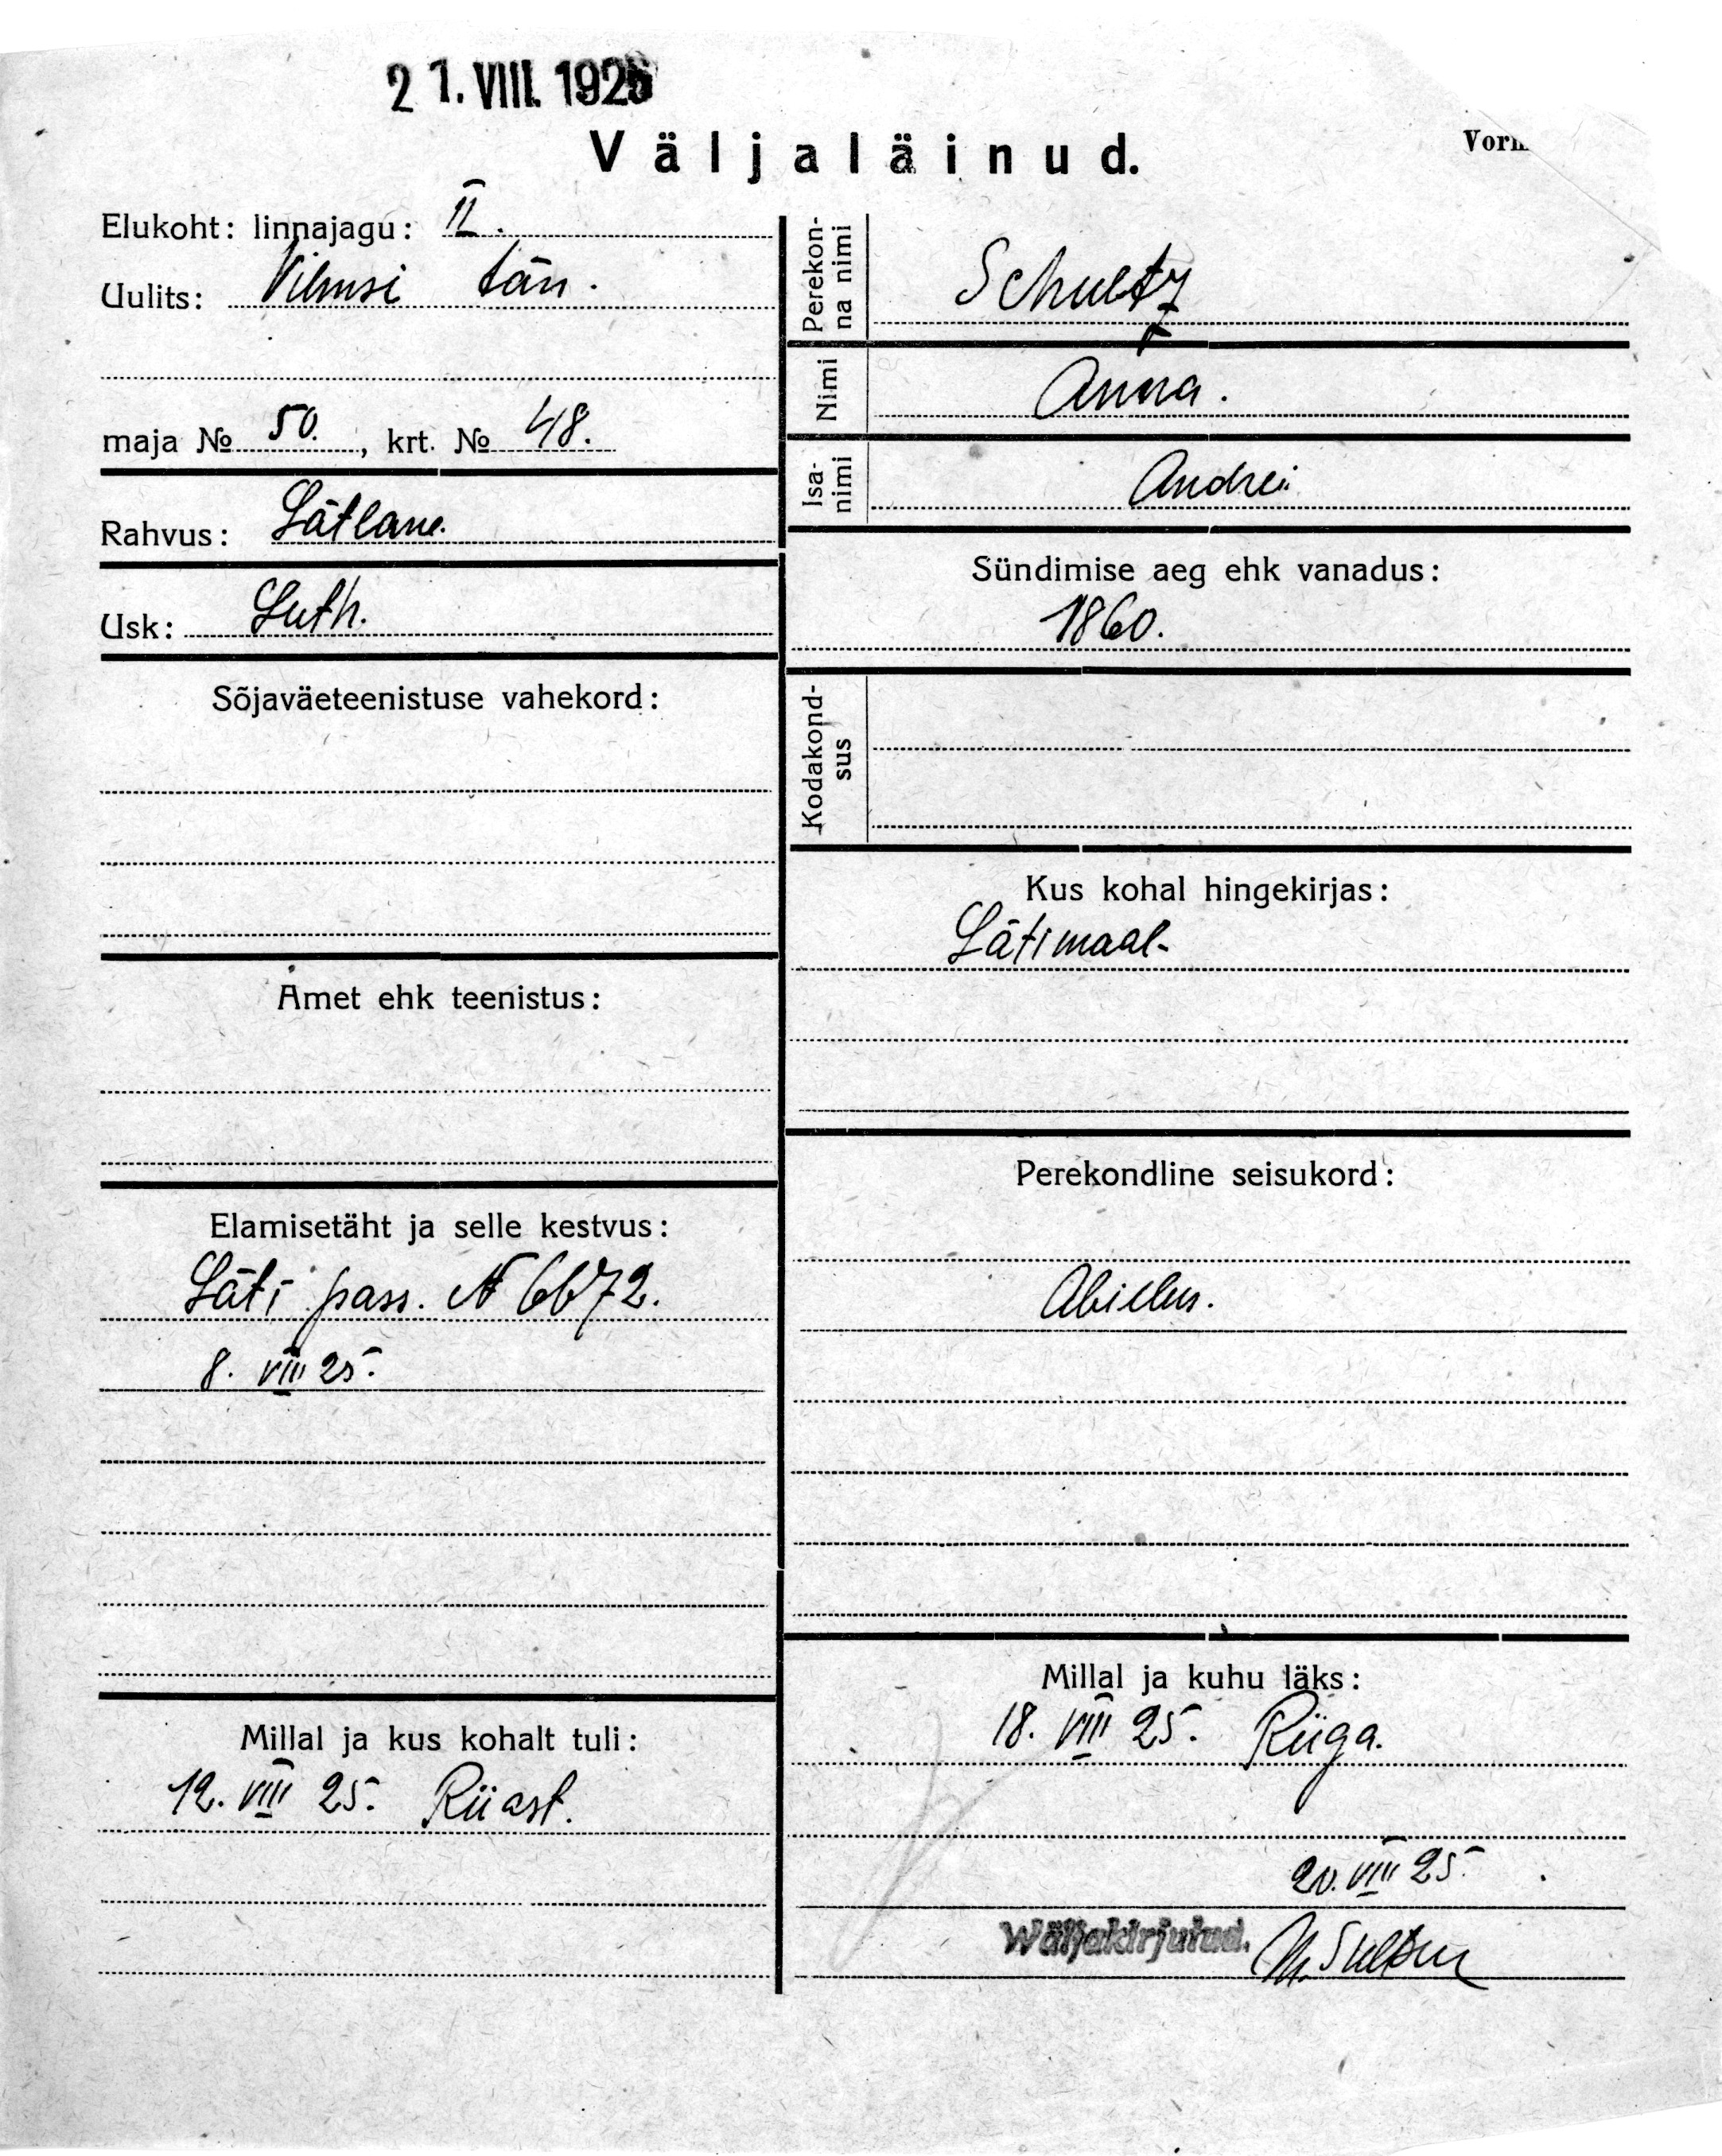 21. VIII. 1925
Väljaläinud.
Elukoht: linnajagu: II.
Uulits: Vilmsi tän.
maja № 50., krt. № 48.
Rahvus: Lätlane.
Usk: Luth.
Sõjaväeteenistuse vahekord:
Amet ehk teenistus:
Elamisetäht ja selle kestvus:
Läti pass. N 6672.
8. VIII 25.
Millal ja kus kohalt tuli:
12. VIII 25. Riiast.
Perekon-
na nimi
Schultz
Nimi
Anna.
Isa-
nimi
Andrei
Sündimise aeg ehk vanadus:
1860.
Kodakond-
sus
Kus kohal hingekirjas:
Lätimaal-
Perekondline seisukord:
Abielus.
Millal ja kuhu läks:
18. VIII 25. Riiga.
20. VIII 25.
Wäljakirjutud.